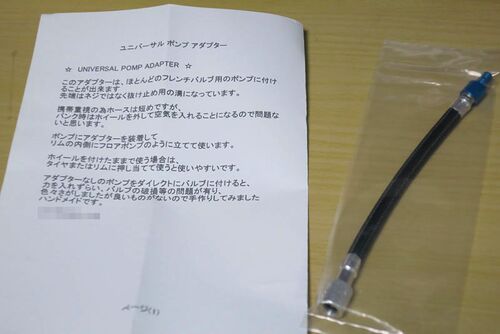 ユニバーサル ポンプ アダプター
☆ UNIVERSAL POMP ADAPTER ☆
このアダプターは、ほとんどのフレンチバルブ用のポンプに付け
ることが出来ます
先端はネジではなく抜け止め用の溝になっています。
携帯重視の為ホースは短めですが、
パンク時はホイールを外して空気を入れることになるので問題な
いと思います。
ポンプにアダプターを装着して
リムの内側にフロアポンプのように立てて使います。
ホイールを付けたままで使う場合は、
タイヤまたはリムに押し当てて使うと使いやすいです。
アダプターなしのポンプをダイレクトにバルブに付けると、
力を入れずらい、バルブの破損等の問題が有り、
色々さがしましたが良いものがないので手作りしてみました
ハンドメイドです。